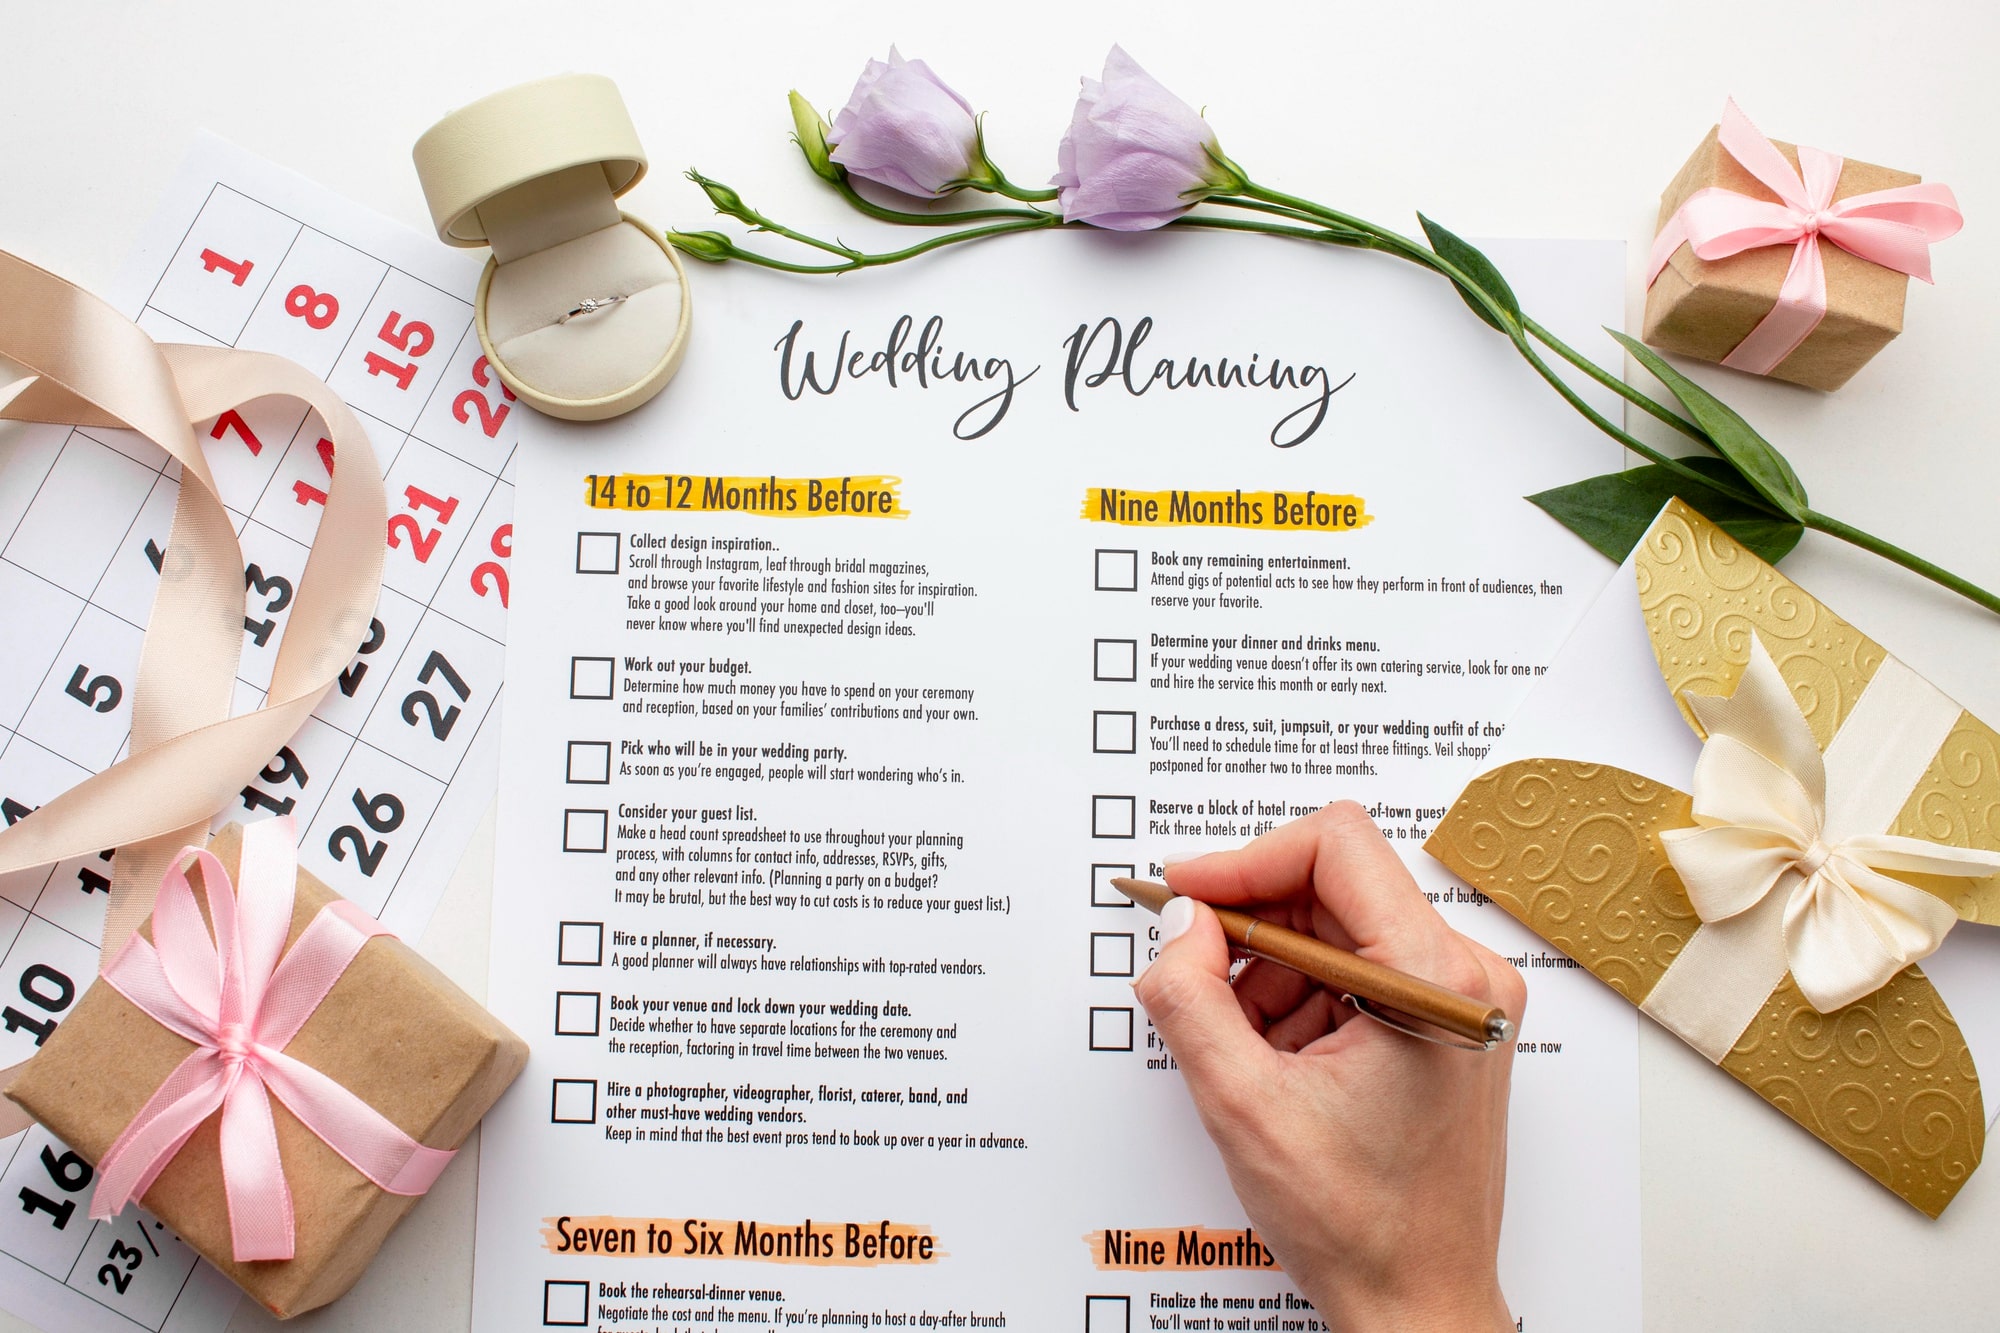 Wedding Planning
14 to 12 Months Before
Collect design inspiration..
Scroll through Instagram, leaf through bridal magazines,
and browse your favorite lifestyle and fashion sites for inspiration.
Take a good look around your home and closet, too—you'll
never know where you'll find unexpected design ideas.
Work out your budget.
Determine how much money you have to spend on your ceremony
and reception, based on your families' contributions and your own.
Pick who will be in your wedding party.
As soon as you're engaged, people will start wondering who's in.
Consider your guest list.
Make a head count spreadsheet to use throughout your planning
process, with columns for contact info, addresses, RSVPs, gifts,
and any other relevant info. (Planning a party on a budget?
It may be brutal, but the best way to cut costs is to reduce your guest list.)
Hire a planner, if necessary.
A good planner will always have relationships with top-rated vendors.
Book your venue and lock down your wedding date.
Decide whether to have separate locations for the ceremony and
the reception, factoring in travel time between the two venues.
Hire a photographer, videographer, florist, caterer, band, and
other must-have wedding vendors.
Keep in mind that the best event pros tend to book up over a year in advance.
Seven to Six Months Before
Book the rehearsal-dinner venue.
Negotiate the cost and the menu. If you're planning to host a day-after brunch
Nine Months Before
Book any remaining entertainment.
Attend gigs of potential acts to see how they perform in front of audiences, then
reserve your favorite.
Determine your dinner and drinks menu.
If your wedding venue doesn't offer its own catering service, look for one
and hire the service this month or early next.
Purchase a dress, suit, jumpsuit, or your wedding outfit of
You'll need to schedule time for at least three fittings. Veil
postponed for another two to three months.
Reserve a block of hotel of-town
Pick three hotels at to the
of
one now
and
Nine Months
Finalize the menu and
You'll want to wait until now to
1
8
15
7
21
13
27
5
19
26
10
16
23/